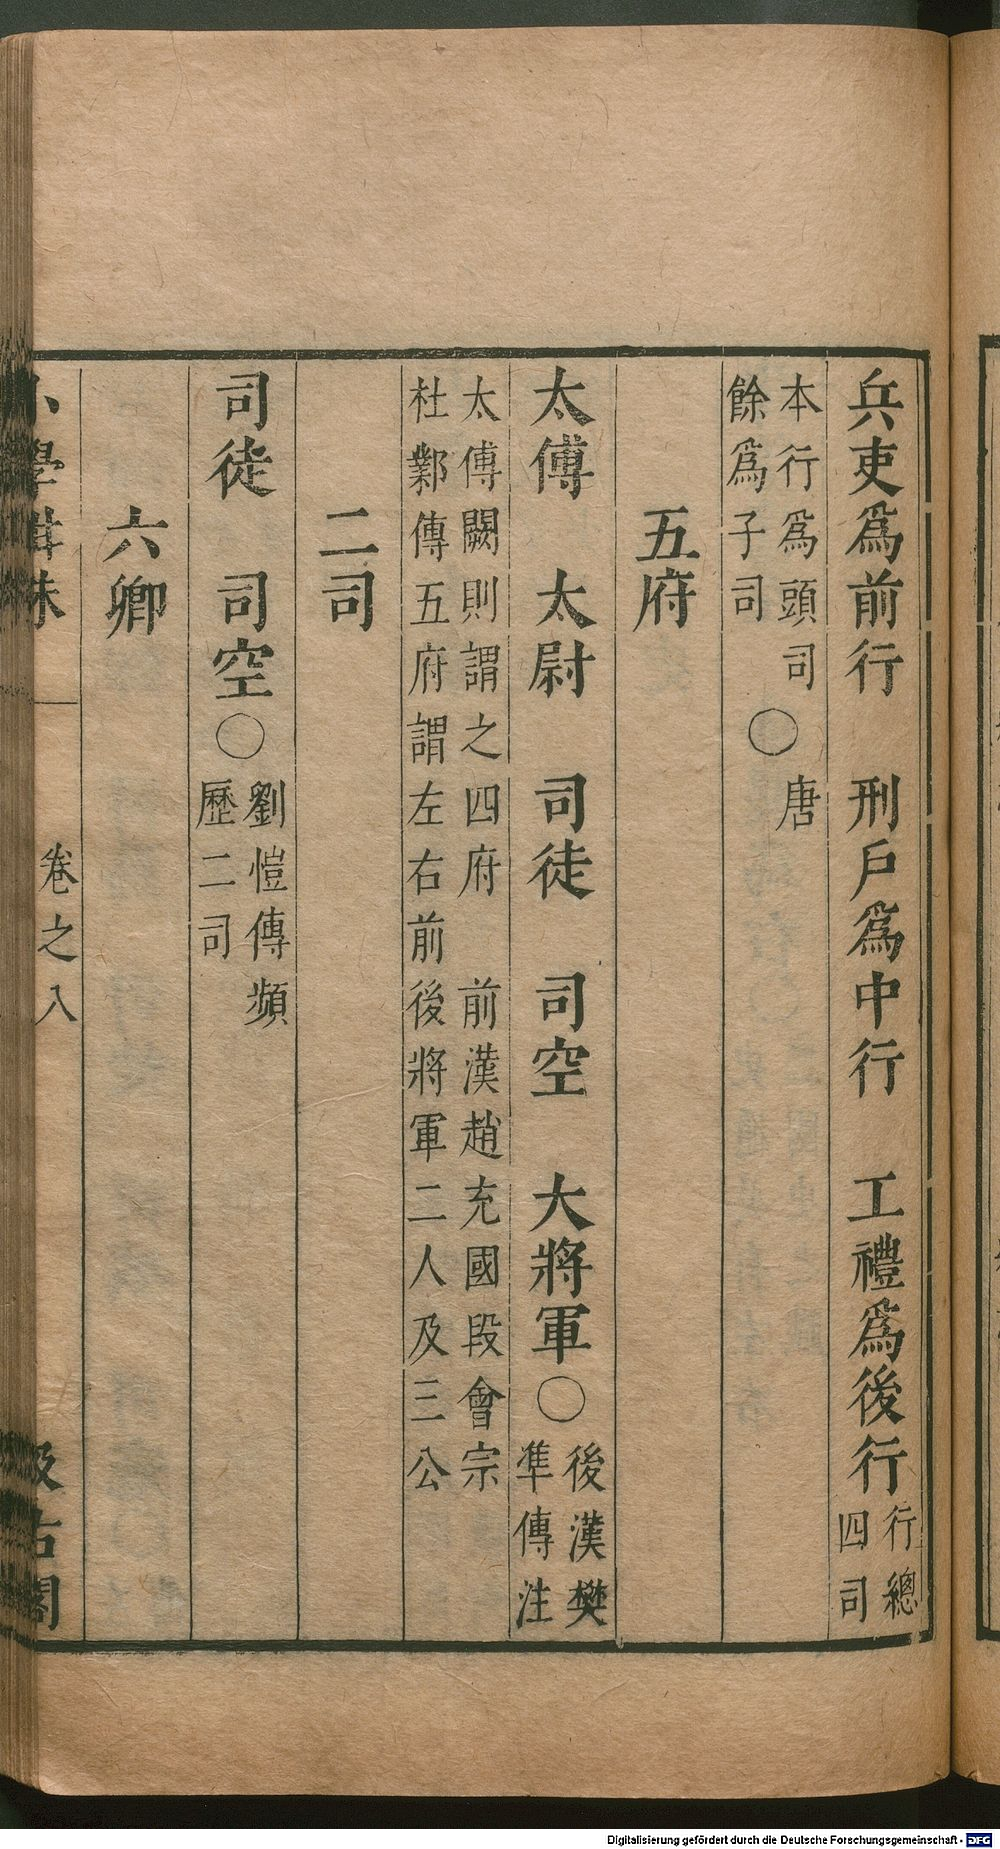 兵吏爲前行　刑戶爲中行　工禮爲後行
行總
四司
本行爲頭司
餘爲子司
〇
唐
五府
太傅　太尉　司徒　司空　大將軍〇
後漢樊
準傳注
太傅闕則謂之四府　前漢趙充國段會宗
杜鄴傳五府謂左右前後將軍二人及三公
二司
司徒　司空〇
劉愷傳頻
歷二司
六卿
小學紺珠
卷之八
汲古閣
Digitalisierung gefördert durch die Deutsche Forschungsgemeinschaft - DFG